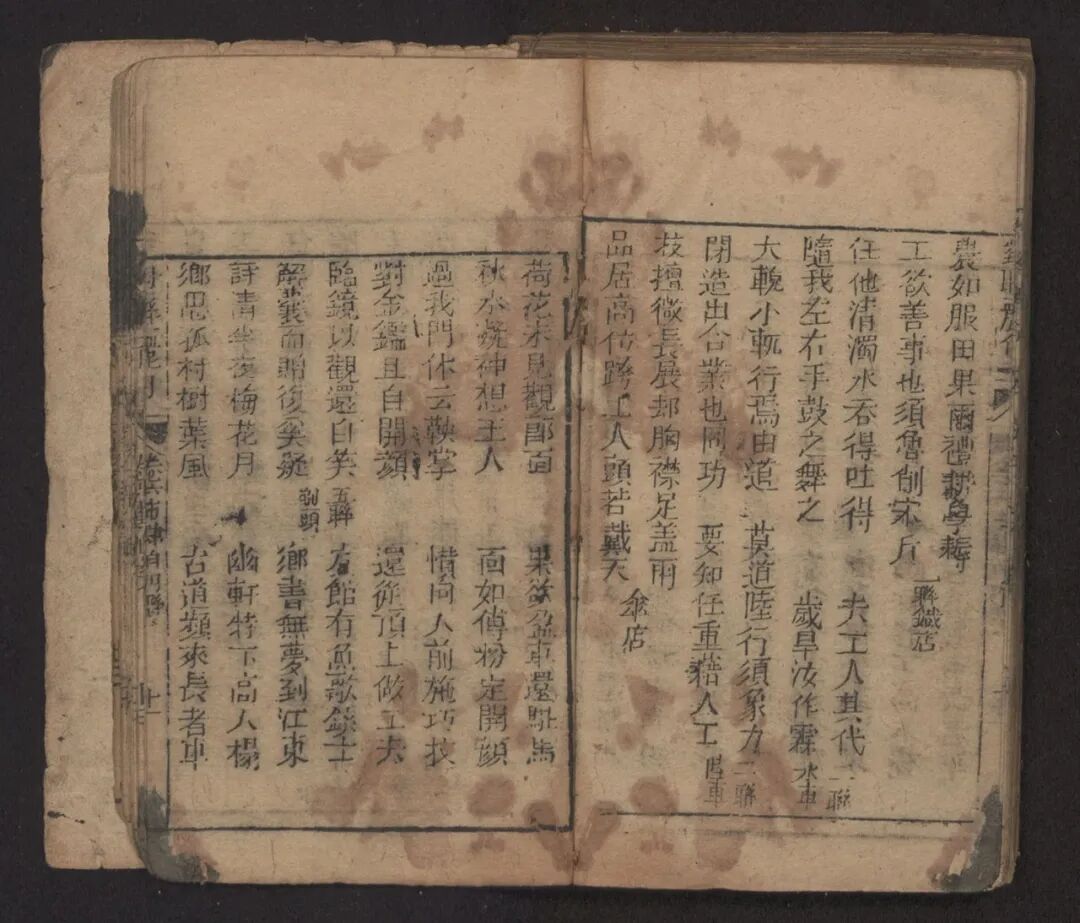 農如服田果爾禮耕學耨
工欲善事也須魯削宋斤 一聯鐵店
任他清濁水吞得吐得 夫工人其代 二聯
隨我左右手鼓之舞之 歲旱汝作霖 水車
大輗小軏行焉由道 莫道陸行須象力 二聯
閉造出合業也同功 要知任重藉人工 唱車
技擅微長展却胸襟足盖雨
品居高位跨上人頭若戴天 傘店
荷花未見觀郎面 果欲盈車還駐馬
秋水凝神想主人 面如傅粉定開顔
過我門休云鞅掌 惜向人前施巧技
對金鑑且自開顔 還從頂上做工夫
臨鏡以觀還自笑 五聯 左館有魚歌鋏士
解囊而贈復奚疑 剃頭 鄉書無夢到江東
詩清半夜梅花月 幽軒特下高人榻
鄉思孤村樹葉風 古道頻來長者車